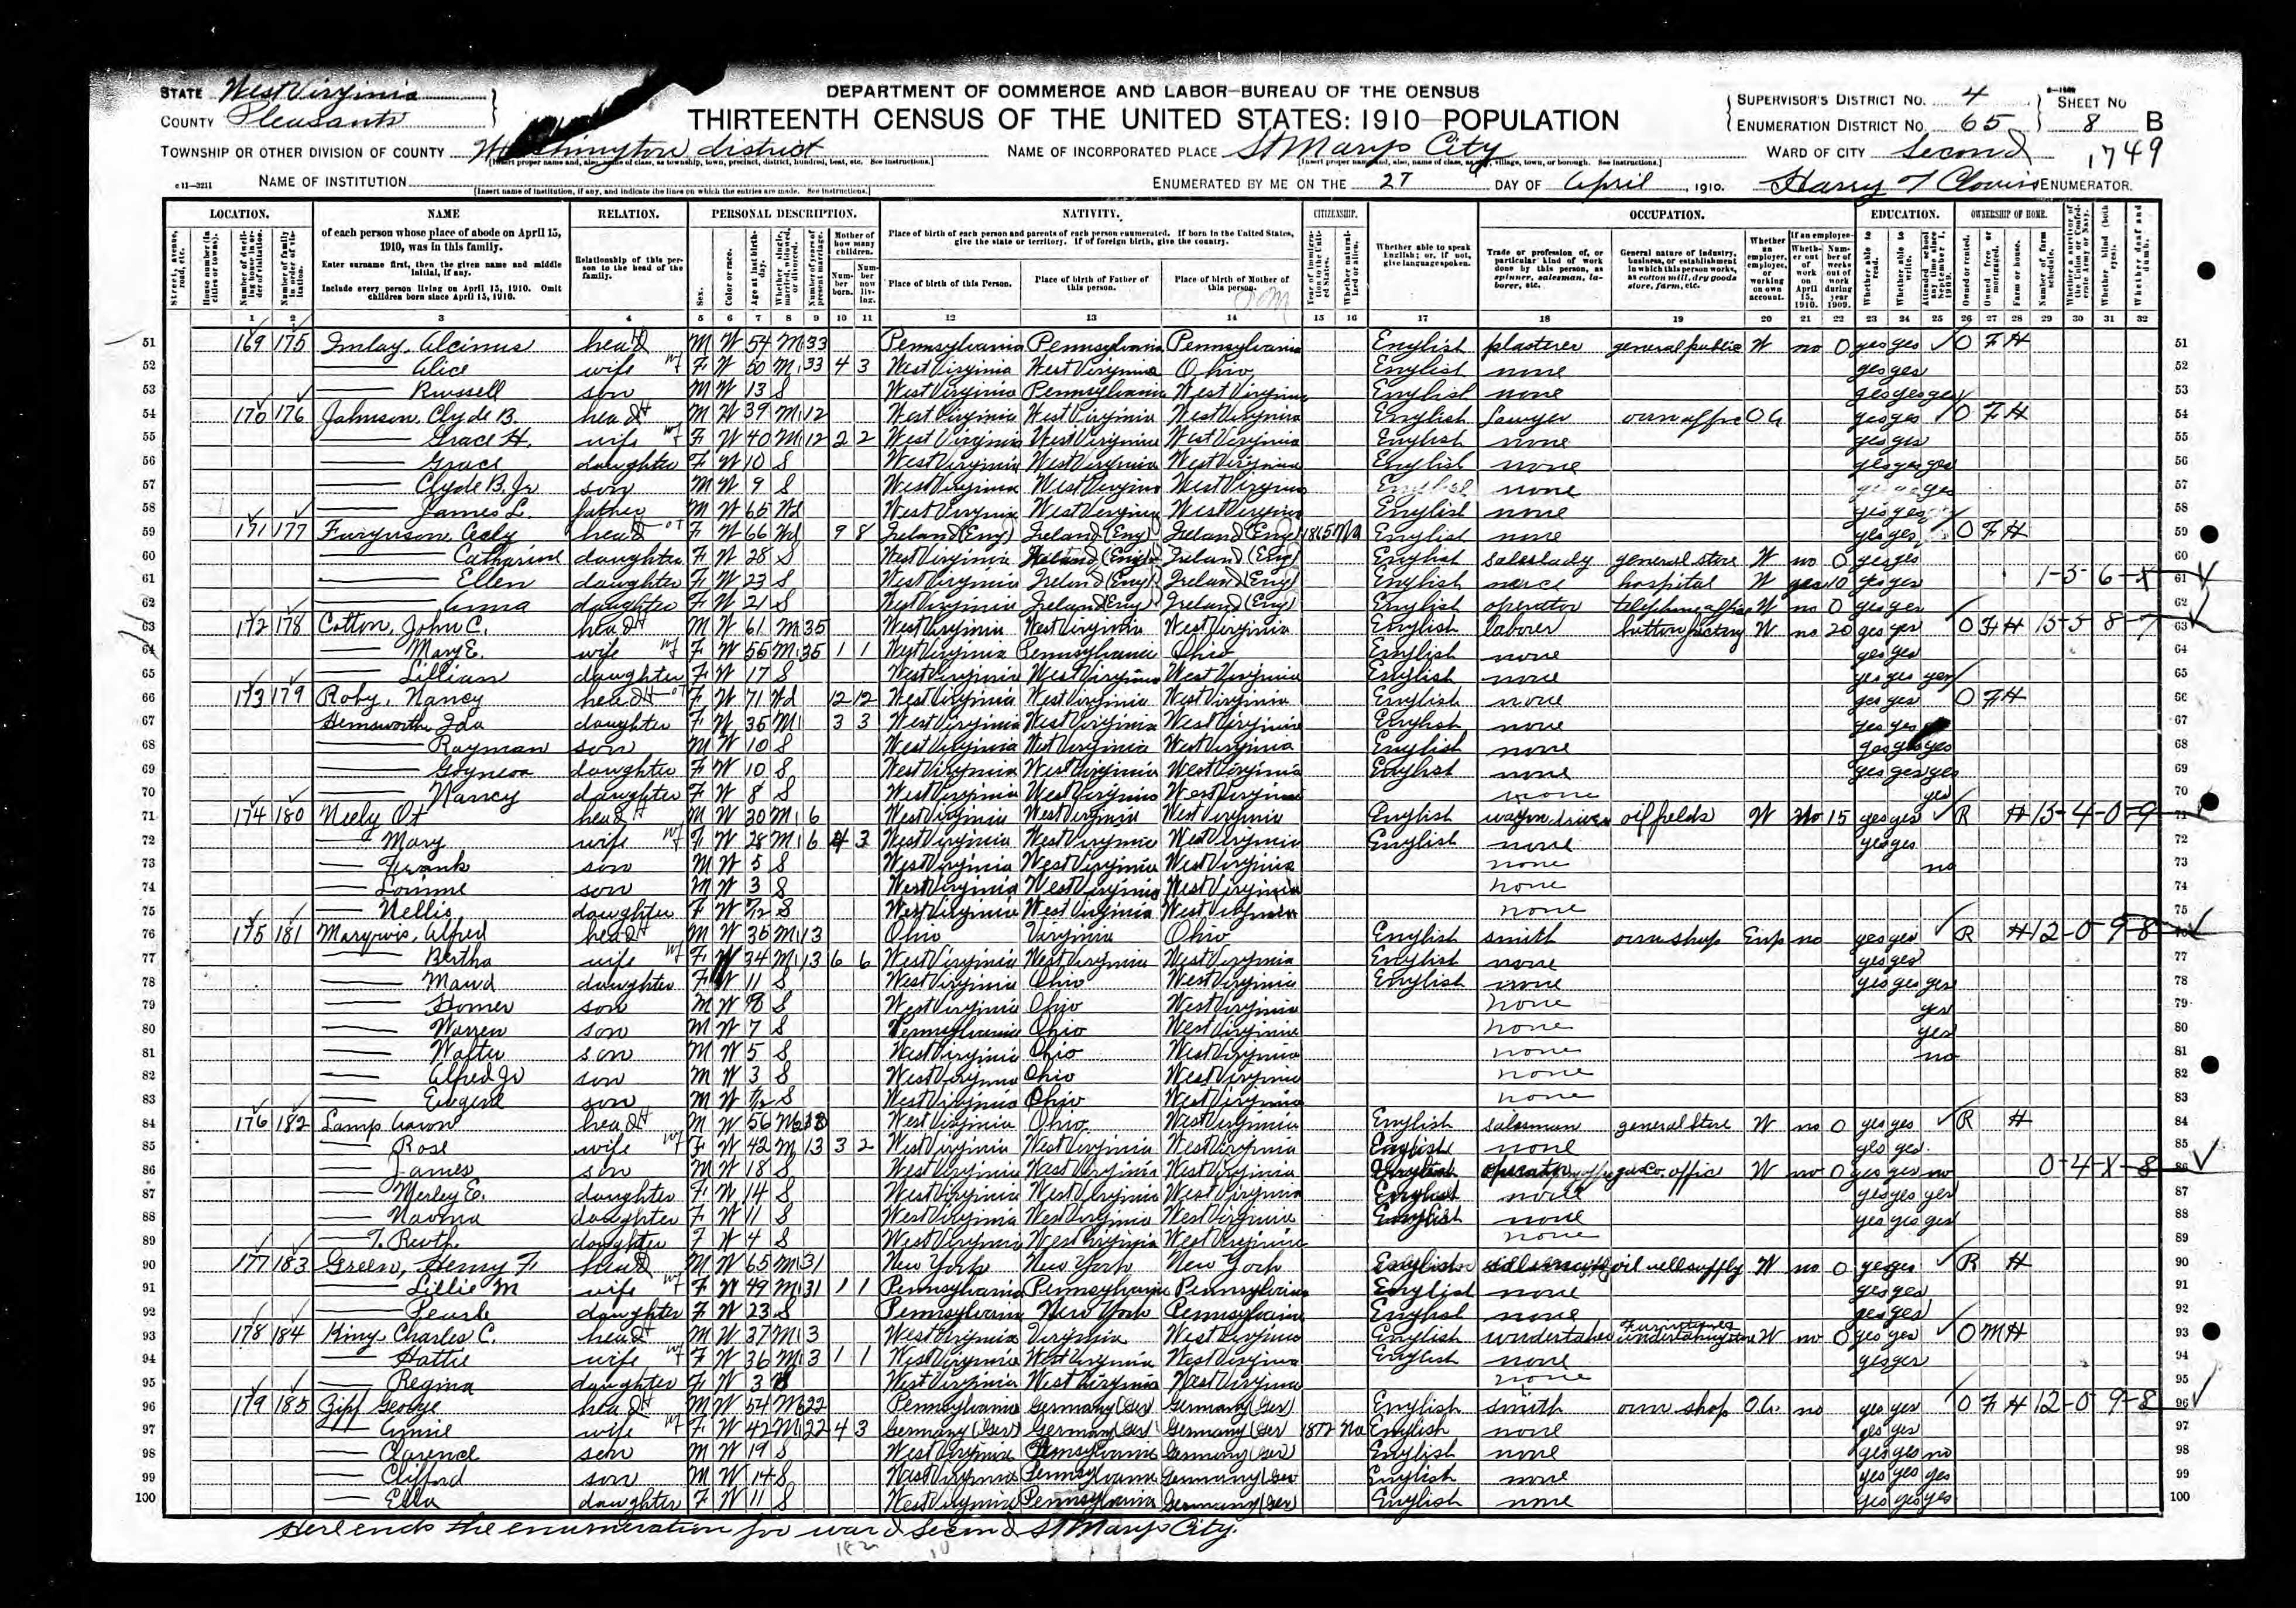 STATE West Virginia
COUNTY Pleasants
DEPARTMENT OF COMMERCE AND LABOR—BUREAU OF THE CENSUS
THIRTEENTH CENSUS OF THE UNITED STATES: 1910—POPULATION
SUPERVISOR'S DISTRICT NO. 4
ENUMERATION DISTRICT NO. 65
SHEET NO 8 B
1749
TOWNSHIP OR OTHER DIVISION OF COUNTY Washington district
NAME OF INCORPORATED PLACE St Marys City
WARD OF CITY Second
NAME OF INSTITUTION
ENUMERATED BY ME ON THE 27 DAY OF April, 1910. Harry ENUMERATOR.
LOCATION. NAME RELATION. PERSONAL DESCRIPTION. NATIVITY. CITIZENSHIP. OCCUPATION. EDUCATION. OWNERSHIP OF HOME.
51 169 175 Imlay, Alcinus head M W 54 M1 33 Pennsylvania Pennsylvania Pennsylvania English plasterer general public W no 0 yes yes O F H
52 Alice wife F W 50 M1 33 4 3 West Virginia West Virginia Ohio English none yes yes
53 Russell son M W 13 S West Virginia Pennsylvania West Virginia English none yes yes yes
54 170 176 Johnson, Clyde B. head M W 39 M1 12 West Virginia West Virginia West Virginia English Lawyer own office O A yes yes O F H
55 Grace H. wife F W 40 M1 12 2 2 West Virginia West Virginia West Virginia English none yes yes
56 Grace daughter F W 10 S West Virginia West Virginia West Virginia English none yes yes yes
57 Clyde B. Jr son M W 9 S West Virginia West Virginia West Virginia English none yes
58 James L. father M W 65 Wd West Virginia West Virginia West Virginia English none yes yes
59 171 177 Furguson, head F W 66 Wd 9 8 Ireland (Eng) Ireland (Eng) Ireland (Eng) 1865 Na English none yes yes O F H
60 Catharine daughter F W 28 S West Virginia Ireland (Eng) Ireland (Eng) English saleslady general store W no 0 yes yes
61 Ellen daughter F W 23 S West Virginia Ireland (Eng) Ireland (Eng) English hospital W yes 10 yes yes 1-3-6-X
62 Anna daughter F W 21 S West Virginia Ireland (Eng) Ireland (Eng) English operator telephone office W no 0 yes yes
63 172 178 Cotton, John C. head M W 61 M 35 West Virginia West Virginia West Virginia English laborer button factory W no 20 yes yes O F H 15-5-8-7
64 Mary E. wife F W 55 M1 35 1 1 West Virginia Pennsylvania Ohio English none yes yes
65 Lillian daughter F W 17 S West Virginia West Virginia West Virginia English none yes yes yes
66 173 179 Roby, Nancy head F W 71 Wd 12 12 West Virginia West Virginia West Virginia English none yes yes O F H
67 Hemsworth, Ida daughter F W 35 M1 3 3 West Virginia West Virginia West Virginia English none yes yes
68 Rayman son M W 10 S West Virginia West Virginia West Virginia English none yes yes yes
69 daughter F W 10 S West Virginia West Virginia West Virginia English none yes yes yes
70 Nancy daughter F W 8 S West Virginia West Virginia West Virginia none yes
71 174 180 Neely Ot head M W 30 M1 6 West Virginia West Virginia West Virginia English wagon driver oil fields W no 15 yes yes R H 15-4-0-9
72 Mary wife F W 28 M1 6 4 3 West Virginia West Virginia West Virginia English none yes yes
73 Frank son M W 5 S West Virginia West Virginia West Virginia none no
74 son M W 3 S West Virginia West Virginia West Virginia none
75 Nellie daughter F W S West Virginia West Virginia West Virginia none
76 175 181 Alfred head M W 35 M1 13 Ohio Virginia Ohio English smith own shop Emp no yes yes R H 12-0-9-8
77 Bertha wife F W 34 M1 13 6 6 West Virginia West Virginia West Virginia English none yes yes
78 Maud daughter F W 11 S West Virginia Ohio West Virginia English none yes yes yes
79 Homer son M W 8 S West Virginia Ohio West Virginia none yes
80 Warren son M W 7 S Pennsylvania Ohio West Virginia none yes
81 Walter son M W 5 S West Virginia Ohio West Virginia none no
82 Alfred Jr son M W 3 S West Virginia Ohio West Virginia none
83 Eugene son M W S West Virginia Ohio West Virginia none
84 176 182 Lamp Aaron head M W 56 M2 West Virginia Ohio West Virginia English salesman general store W no 0 yes yes R H
85 Rose wife F W 42 M 13 3 2 West Virginia West Virginia West Virginia English none yes yes
86 James son M W 18 S West Virginia West Virginia West Virginia English operator gas Co. office W no 0 yes yes no 0-4-X-8
87 Merley E. daughter F W 14 S West Virginia West Virginia West Virginia English none yes yes yes
88 Naoma daughter F W 11 S West Virginia West Virginia West Virginia English none yes yes yes
89 T. Ruth daughter F W 4 S West Virginia West Virginia West Virginia none
90 177 183 Green, Henry F. head M W 65 M1 31 New York New York New York English oil well supply W no 0 yes yes R H
91 Lillie M wife F W 49 M1 31 1 1 Pennsylvania Pennsylvania Pennsylvania English none yes yes
92 Pearle daughter F W 23 S Pennsylvania New York Pennsylvania English none yes yes
93 178 184 King, Charles C. head M W 37 M1 3 West Virginia Virginia West Virginia English undertaker furniture & undertaking store W no 0 yes yes O M H
94 Hattie wife F W 36 M1 3 1 1 West Virginia West Virginia West Virginia English none yes yes
95 Regina daughter F W 3 S West Virginia West Virginia West Virginia none
96 179 185 Zipf George head M W 54 M 22 Pennsylvania Germany (Ger) Germany (Ger) English smith own shop O.A. no yes yes O F H 12-0-9-8
97 wife F W 42 M1 22 4 3 Germany (Ger) Germany (Ger) Germany (Ger) 1872 Na English none yes yes
98 Clarence son M W 19 S West Virginia Pennsylvania Germany (Ger) English none yes yes no
99 Clifford son M W 14 S West Virginia Pennsylvania Germany (Ger) English none yes yes yes
100 Ella daughter F W 11 S West Virginia Pennsylvania Germany (Ger) English none yes yes yes
Here ends the enumeration for ward Second St Marys City.